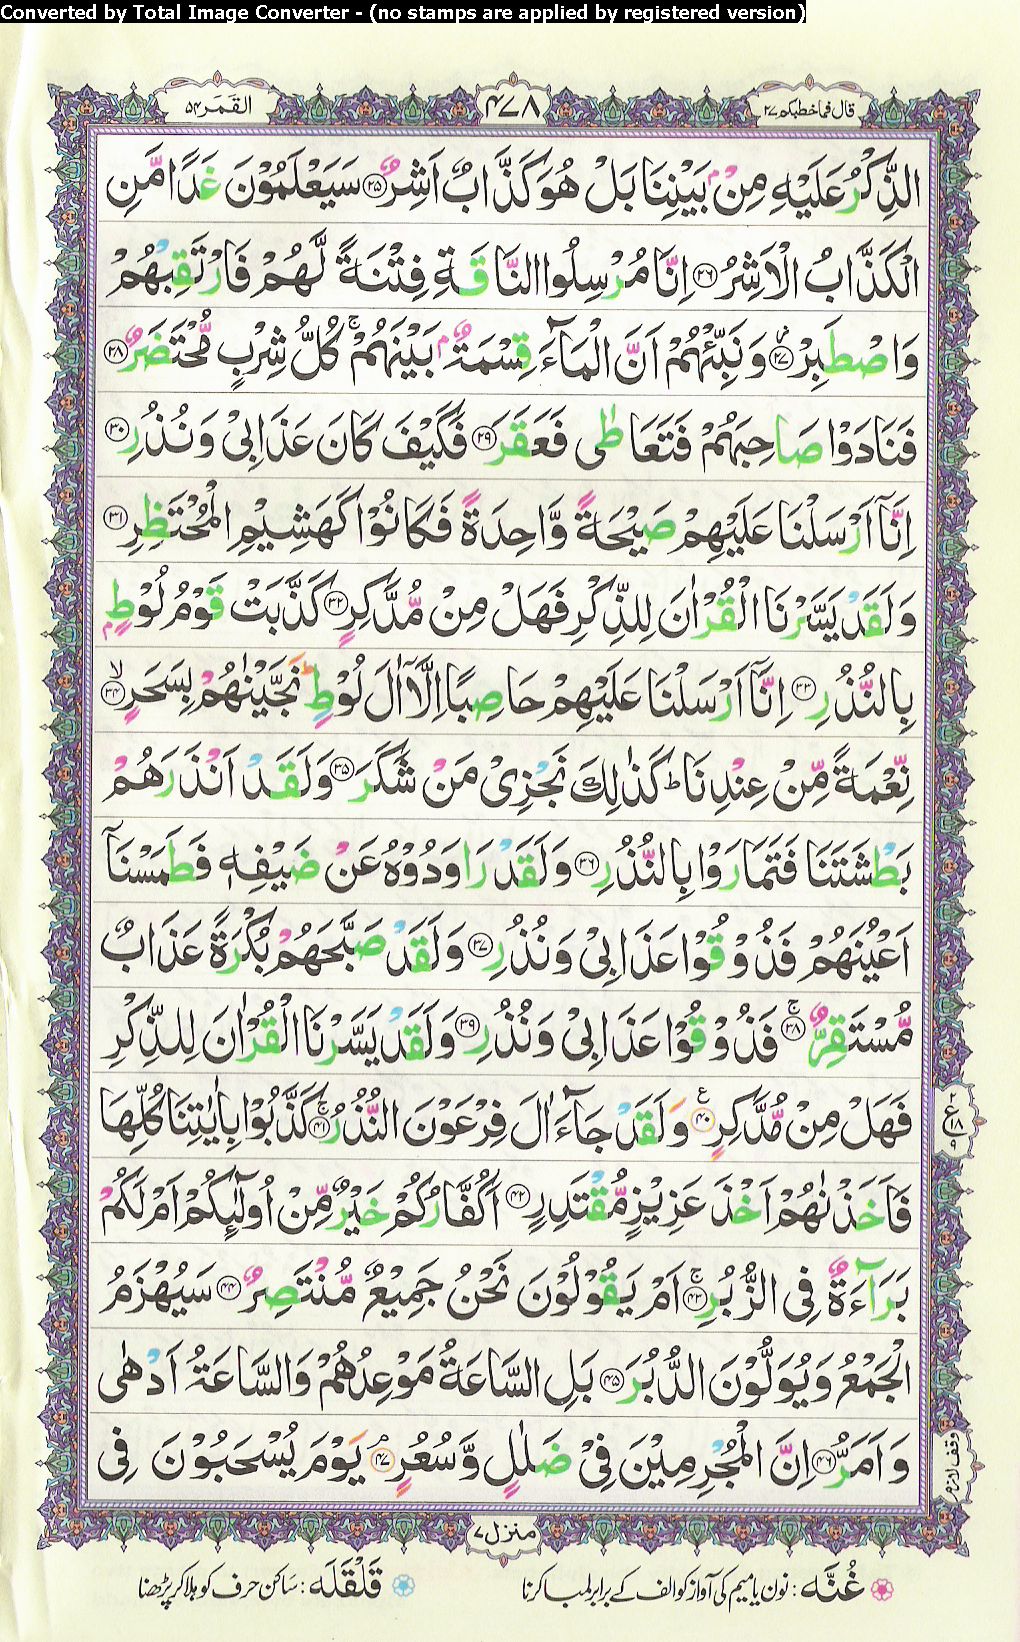 Converted by Total Image Converter - (no stamps are applied by registered version)
القمر ٥٤
٤٧٨
قال فماخطبكم ٢٧
الذِّكْرُ عَلَيْهِ مِنْۢ بَيْنِنَا بَلْ هُوَ كَذَّابٌ اَشِرٌ ﴿۲۵﴾ سَيَعْلَمُوْنَ غَدًا مَّنِ
الْكَذَّابُ الْاَشِرُ ﴿۲۶﴾ اِنَّا مُرْسِلُوا النَّاقَةِ فِتْنَةً لَّهُمْ فَارْتَقِبْهُمْ
وَاصْطَبِرْ ﴿۲۷﴾ وَنَبِّئْهُمْ اَنَّ الْمَآءَ قِسْمَةٌۢ بَيْنَهُمْ ۚ كُلُّ شِرْبٍ مُّحْتَضَرٌ ﴿۲۸﴾
فَنَادَوْا صَاحِبَهُمْ فَتَعَاطٰى فَعَقَرَ ﴿۲۹﴾ فَكَيْفَ كَانَ عَذَابِىْ وَنُذُرِ ﴿۳۰﴾
اِنَّاۤ اَرْسَلْنَا عَلَيْهِمْ صَيْحَةً وَّاحِدَةً فَكَانُوْا كَهَشِيْمِ الْمُحْتَظِرِ ﴿۳۱﴾
وَلَقَدْ يَسَّرْنَا الْقُرْاٰنَ لِلذِّكْرِ فَهَلْ مِنْ مُّدَّكِرٍ ﴿۳۲﴾ كَذَّبَتْ قَوْمُ لُوْطٍۢ
بِالنُّذُرِ ﴿۳۳﴾ اِنَّاۤ اَرْسَلْنَا عَلَيْهِمْ حَاصِبًا اِلَّاۤ اٰلَ لُوْطٍ ؕ نَجَّيْنٰهُمْ بِسَحَرٍ ﴿۳۴﴾ۙ
نِّعْمَةً مِّنْ عِنْدِنَا ؕ كَذٰلِكَ نَجْزِىْ مَنْ شَكَرَ ﴿۳۵﴾ وَلَقَدْ اَنْذَرَهُمْ
بَطْشَتَنَا فَتَمَارَوْا بِالنُّذُرِ ﴿۳۶﴾ وَلَقَدْ رَاوَدُوْهُ عَنْ ضَيْفِهٖ فَطَمَسْنَاۤ
اَعْيُنَهُمْ فَذُوْقُوْا عَذَابِىْ وَنُذُرِ ﴿۳۷﴾ وَلَقَدْ صَبَّحَهُمْ بُكْرَةً عَذَابٌ
مُّسْتَقِرٌّ ﴿۳۸﴾ۚ فَذُوْقُوْا عَذَابِىْ وَنُذُرِ ﴿۳۹﴾ وَلَقَدْ يَسَّرْنَا الْقُرْاٰنَ لِلذِّكْرِ
فَهَلْ مِنْ مُّدَّكِرٍ ﴿۴۰﴾ وَلَقَدْ جَآءَ اٰلَ فِرْعَوْنَ النُّذُرُ ﴿۴۱﴾ۚ كَذَّبُوْا بِاٰيٰتِنَا كُلِّهَا
ع ١٨ ٩
فَاَخَذْنٰهُمْ اَخْذَ عَزِيْزٍ مُّقْتَدِرٍ ﴿۴۲﴾ اَكُفَّارُكُمْ خَيْرٌ مِّنْ اُولٰٓئِكُمْ اَمْ لَكُمْ
بَرَآءَةٌ فِى الزُّبُرِ ﴿۴۳﴾ۚ اَمْ يَقُوْلُوْنَ نَحْنُ جَمِيْعٌ مُّنْتَصِرٌ ﴿۴۴﴾ سَيُهْزَمُ
الْجَمْعُ وَيُوَلُّوْنَ الدُّبُرَ ﴿۴۵﴾ بَلِ السَّاعَةُ مَوْعِدُهُمْ وَالسَّاعَةُ اَدْهٰى
وَاَمَرُّ ﴿۴۶﴾ اِنَّ الْمُجْرِمِيْنَ فِىْ ضَلٰلٍ وَّسُعُرٍ ﴿۴۷﴾ۘ يَوْمَ يُسْحَبُوْنَ فِى
وقف لازم
منزل ۷
غُنَّه : نون یا میم کی آواز کو الف کے برابر لمبا کرنا
قَلْقَلَه : ساکن حرف کو ہلا کر پڑھنا